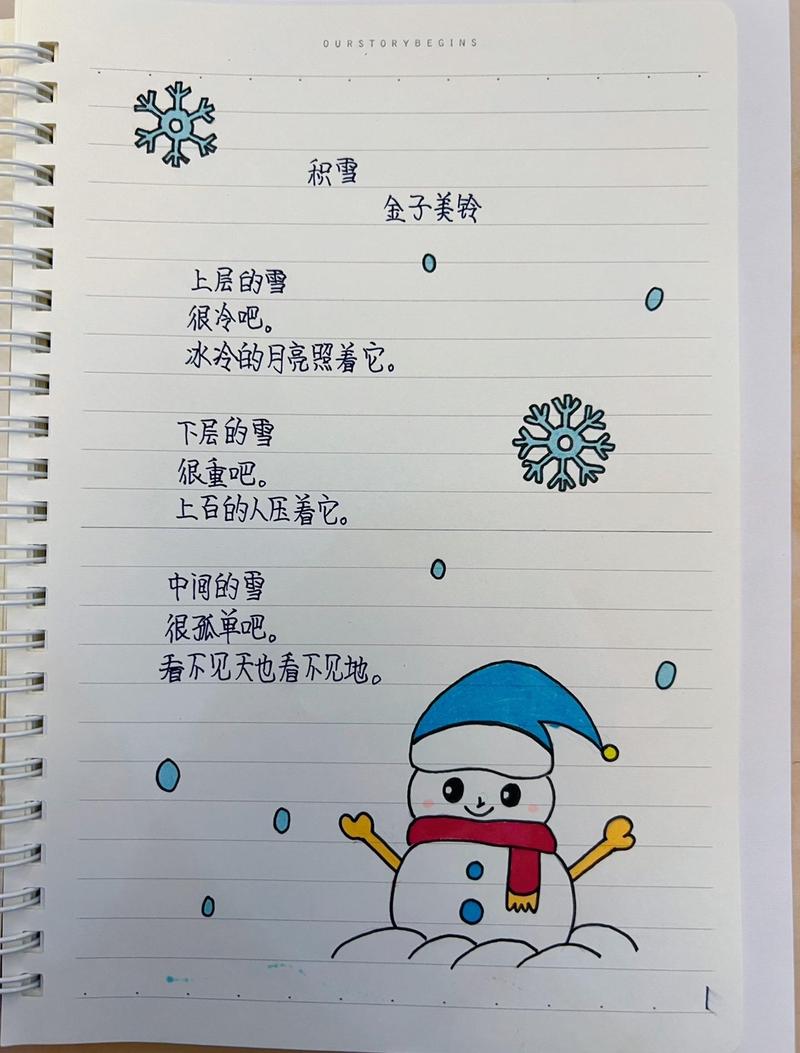 OURSTORYBEGINS
积雪
金子美铃
上层的雪
很冷吧。
冰冷的月亮照着它。
下层的雪
很重吧。
上百的人压着它。
中间的雪
很孤单吧。
看不见天也看不见地。